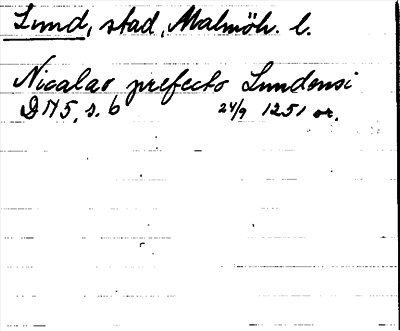 Lund, stad, Malmöh. l.
Nicalao prefecto Lundensi
DN 5, s. 6 24/9 1251 or.